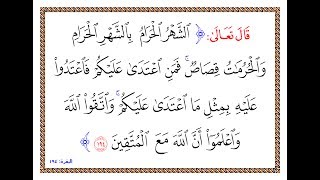 قَالَ تَعَالَىٰ: ﴿ ٱلشَّهْرُ ٱلْحَرَامُ بِٱلشَّهْرِ ٱلْحَرَامِ
وَٱلْحُرُمَٰتُ قِصَاصٌۚ فَمَنِ ٱعْتَدَىٰ عَلَيْكُمْ فَٱعْتَدُوا۟
عَلَيْهِ بِمِثْلِ مَا ٱعْتَدَىٰ عَلَيْكُمْۚ وَٱتَّقُوا۟ ٱللَّهَ
وَٱعْلَمُوٓا۟ أَنَّ ٱللَّهَ مَعَ ٱلْمُتَّقِينَ ١٩٤ ﴾
البقرة: ١٩٤